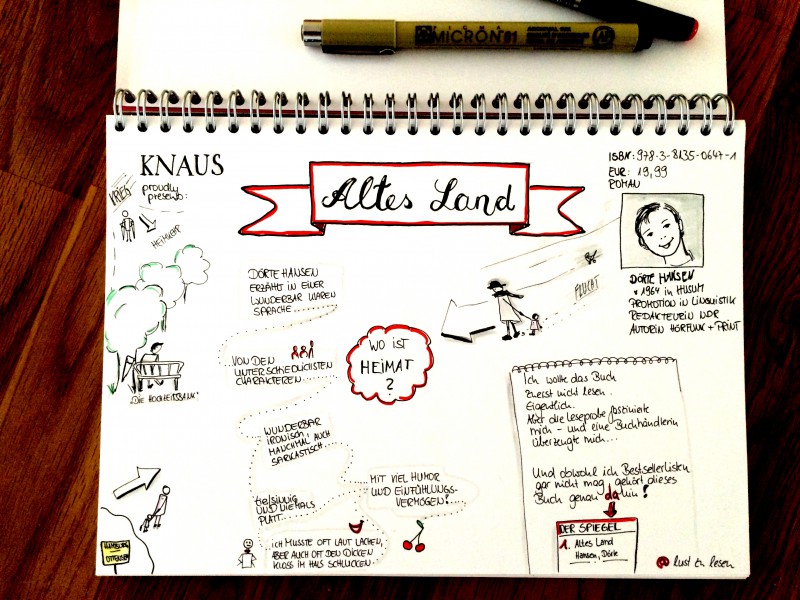 MICRON 01
KNAUS
proudly
presents:
Altes Land
ISBN: 978-3-8135-0647-1
EUR: 19,99
ROMAN
KRIEG
HEIMKEHR
DÖRTE HANSEN
* 1964 in HUSUM
PROMOTION IN LINGUISTIK
REDAKTEURIN NDR
AUTORIN HÖRFUNK + PRINT
FLUCHT
DÖRTE HANSEN
ERZÄHLT IN EINER
WUNDERBAR WAREN
SPRACHE...
VON DEN
UNTERSCHIEDLICHSTEN
CHARAKTEREN...
WO IST
HEIMAT
?
„DIE HOCHZEITSBANK"
WUNDERBAR
IRONISCH,
MANCHMAL AUCH
SARKASTISCH...
MIT VIEL HUMOR
UND EINFÜHLUNGS-
VERMÖGEN!
tiefsinnig
UND NIEMALS
PLATT...
ICH MUSSTE OFT LAUT LACHEN,
ABER AUCH OFT DEN DICKEN
KLOSS IM HALS SCHLUCKEN.
HAMBURG
OTTENSEN
Ich wollte das Buch
zuerst nicht lesen.
Eigentlich.
Aber die Leseprobe faszinierte
mich - und eine Buchhändlerin
überzeugte mich...
Und obwohl ich Bestsellerlisten
gar nicht mag, gehört dieses
Buch genau dahin!
DER SPIEGEL
1. Altes Land
Hansen, Dörte
@ lust zu lesen